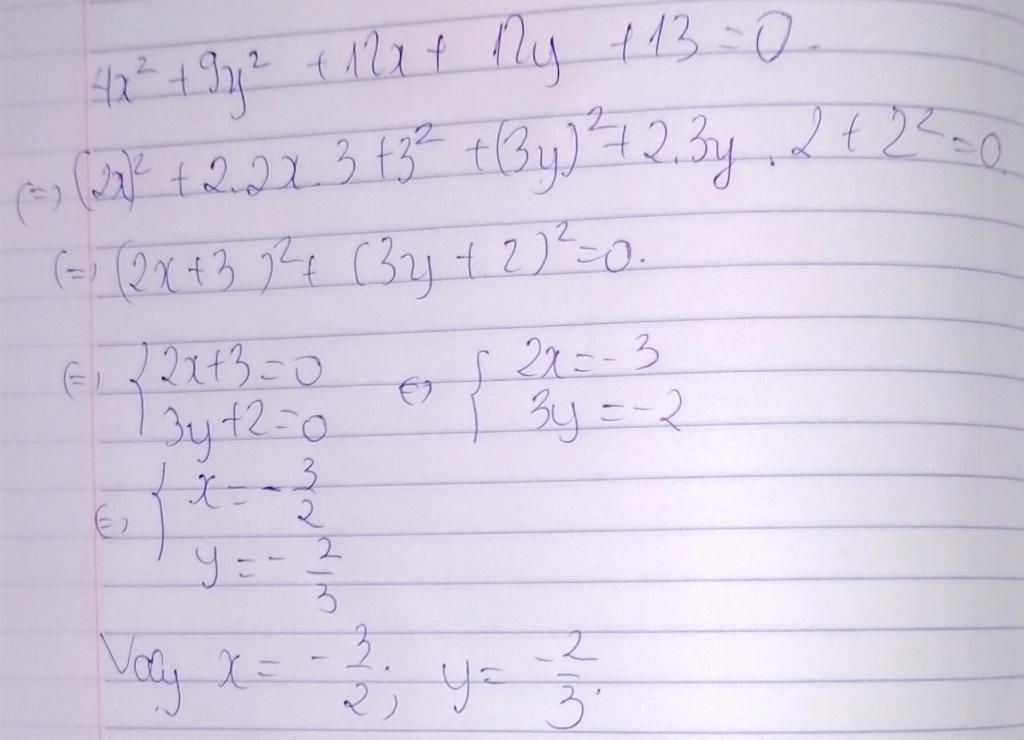 4x² + 9y² + 12x + 12y + 13 = 0.
(=) (2x)² + 2.2x.3 + 3² + (3y)² + 2.3y.2 + 2² = 0.
(=) (2x+3)² + (3y+2)² = 0.
(=) { 2x+3=0 (=) { 2x=-3
3y+2=0 3y=-2
(=) { x = -3/2
y = -2/3
Vậy x = -3/2; y = -2/3.